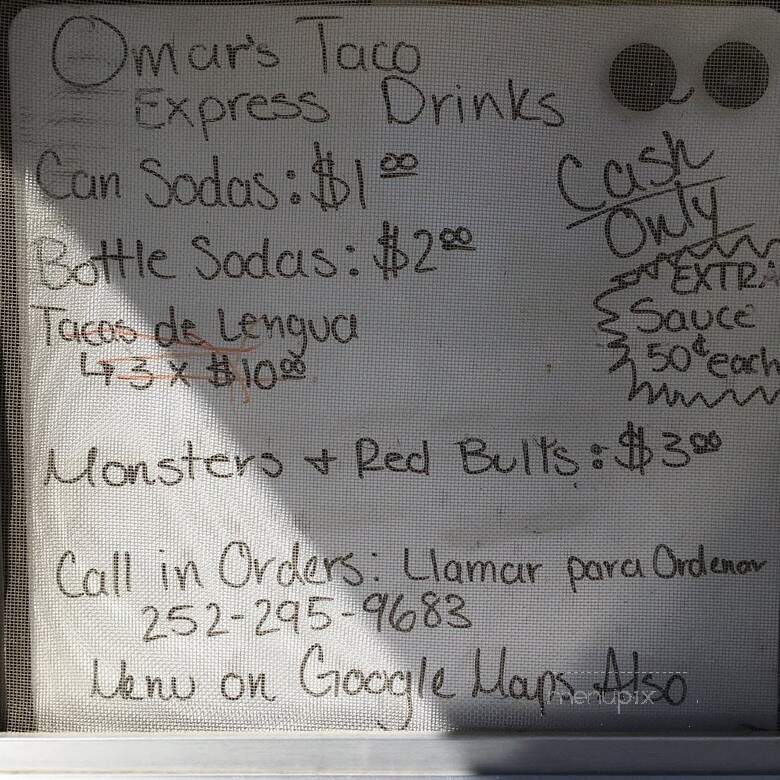 Omar's Taco
Express Drinks
Can Sodas: $1 00
Cash
Only
Bottle Sodas: $2 00
EXTRA
Sauce
50¢ each
Tacos de Lengua
↳ 3 x $10 00
Monsters + Red Bulls: $3 00
Call in Orders: Llamar para Ordenar
252-295-9683
Menu on Google Maps Also
menupix